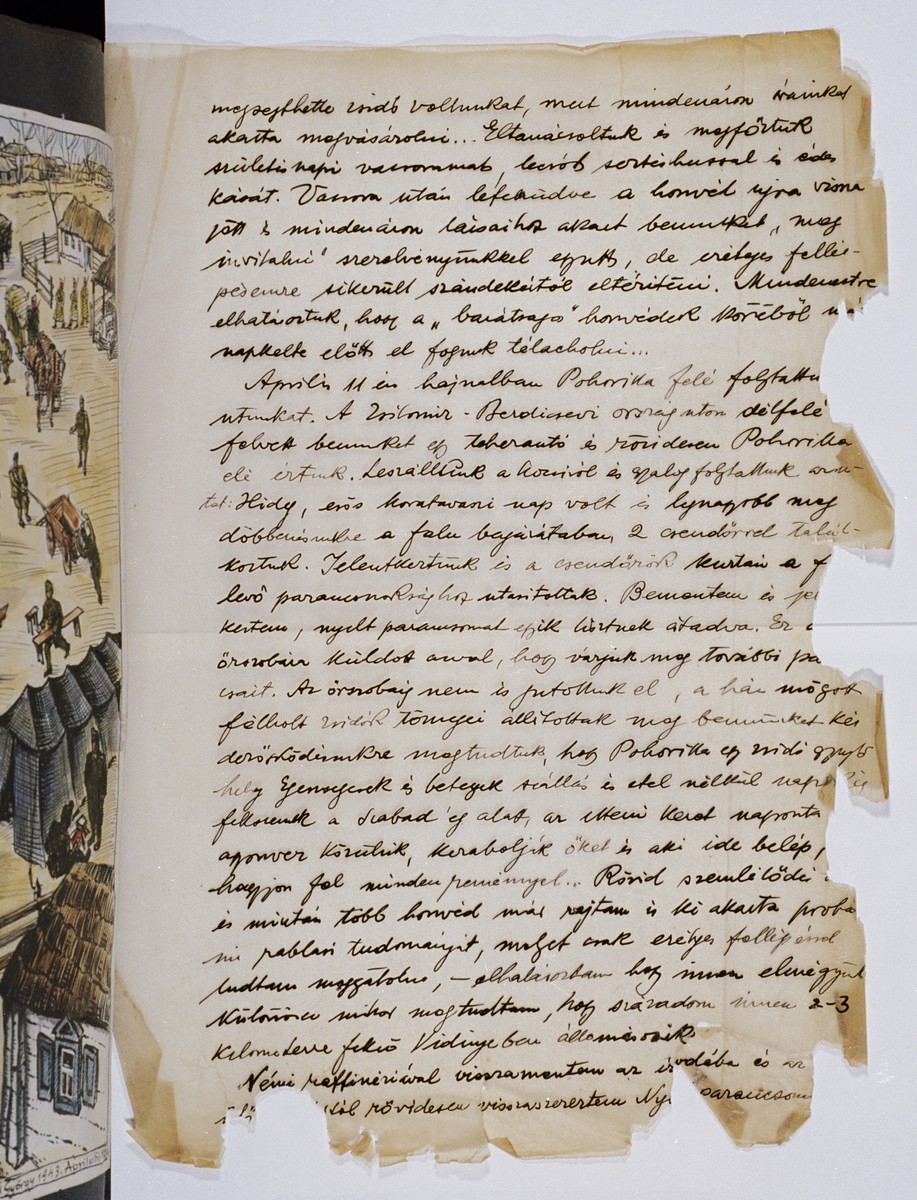 megsejthette zsidó voltunkat, mert mindenáron óráinkat
akarta megvásárolni... Eltanácsoltuk és megfőztük
születésnapi vacsoránkat, lecsót sertéshussal és édes
kását. Vacsora után lefeküdve a honvéd ujra vissza
jött és mindenáron társaihoz akart bennünket „meg
invitálni" szerelvényünkkel együtt, de erélyes fellé-
pésemre sikerült szándékától eltéríteni. Mindenesetre
elhatároztuk, hogy a „barátságos" honvédek köréből
napkelte előtt el fogunk
Április 11 én hajnalban Pohorilla felé folytattu
utunkat. A Zsitomir - Berdicsevi országuton délfelé
felvett bennünket egy teherautó és rövidesen Pohorilla
elé értünk. Leszálltunk a kocsiról és gyalog folytattunk
Hideg, erős tavaszi nap volt és legnagyobb meg
döbbenésünkre a falu bejáratában, 2 csendőrrel talál-
koztunk. Jelentkeztünk és a csendőrök kurtán a f
levő parancsnoksághoz utasítottak. Bementem és je
keztem, nyílt parancsomat egyik tisztnek átadva. Ez
őrszobára küldött avval, hogy várjuk meg további pa
csait. Az őrszobáig nem is jutottunk el, a ház mögött
félholt zsidók tömegei állítottak meg bennünket
megtudtuk, hogy Pohorilla egy zsidó gyűjtő
hely Egészségesek és betegek szállás és étel nélkül
feküsznek a szabad ég alatt, az itteni keret naponta
agyonver közülük, kirabolják őket és aki ide belép,
hagyjon fel minden reménnyel... Rövid szemlélődés
és miután több honvéd már rajtam is ki akarta probá
ni rablási tudományát, melyet csak erélyes fellépéssel
tudtam meggátolni, - elhatároztam hogy innen elmegyünk
Különösen mikor megtudtam, hogy századom innen 2-3
kilométerre fekvő Vidinyeben állomásozik
Némi raffinériával visszamentem az irodába és az
rövidesen visszaszereztem Nyi parancsom
György 1943. Április